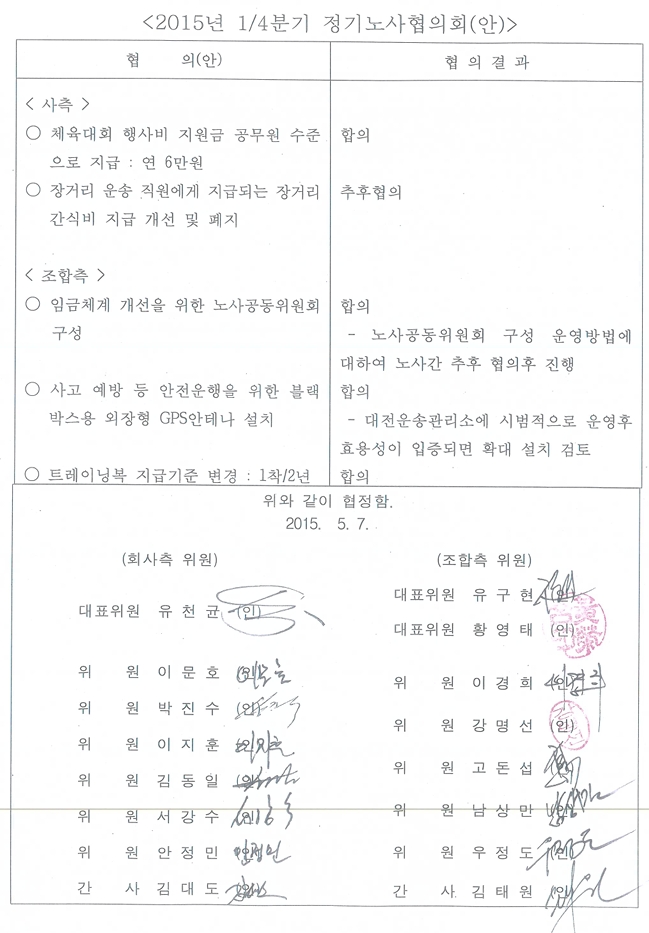 <2015년 1/4분기 정기노사협의회(안)>
협 의(안)
협 의 결 과
< 사측 >
○ 체육대회 행사비 지원금 공무원 수준
으로 지급 : 연 6만원
합의
○ 장거리 운송 직원에게 지급되는 장거리
간식비 지급 개선 및 폐지
추후협의
< 조합측 >
○ 임금체계 개선을 위한 노사공동위원회
구성
합의
- 노사공동위원회 구성 운영방법에
대하여 노사간 추후 협의후 진행
○ 사고 예방 등 안전운행을 위한 블랙
박스용 외장형 GPS안테나 설치
합의
- 대전운송관리소에 시범적으로 운영후
효용성이 입증되면 확대 설치 검토
○ 트레이닝복 지급기준 변경 : 1착/2년
합의
위와 같이 협정함.
2015. 5. 7.
(회사측 위원)
대표위원 유 천 균 (인)
위 원 이 문 호
위 원 박 진 수
위 원 이 지 훈
위 원 김 동 일
위 원 서 강 수
위 원 안 정 민
간 사 김 대 도
(조합측 위원)
대표위원 유 구 현 (인)
대표위원 황 영 태 (인)
위 원 이 경 희
위 원 강 명 선 (인)
위 원 고 돈 섭
위 원 남 상 만
위 원 우 정 도
간 사 김 태 원